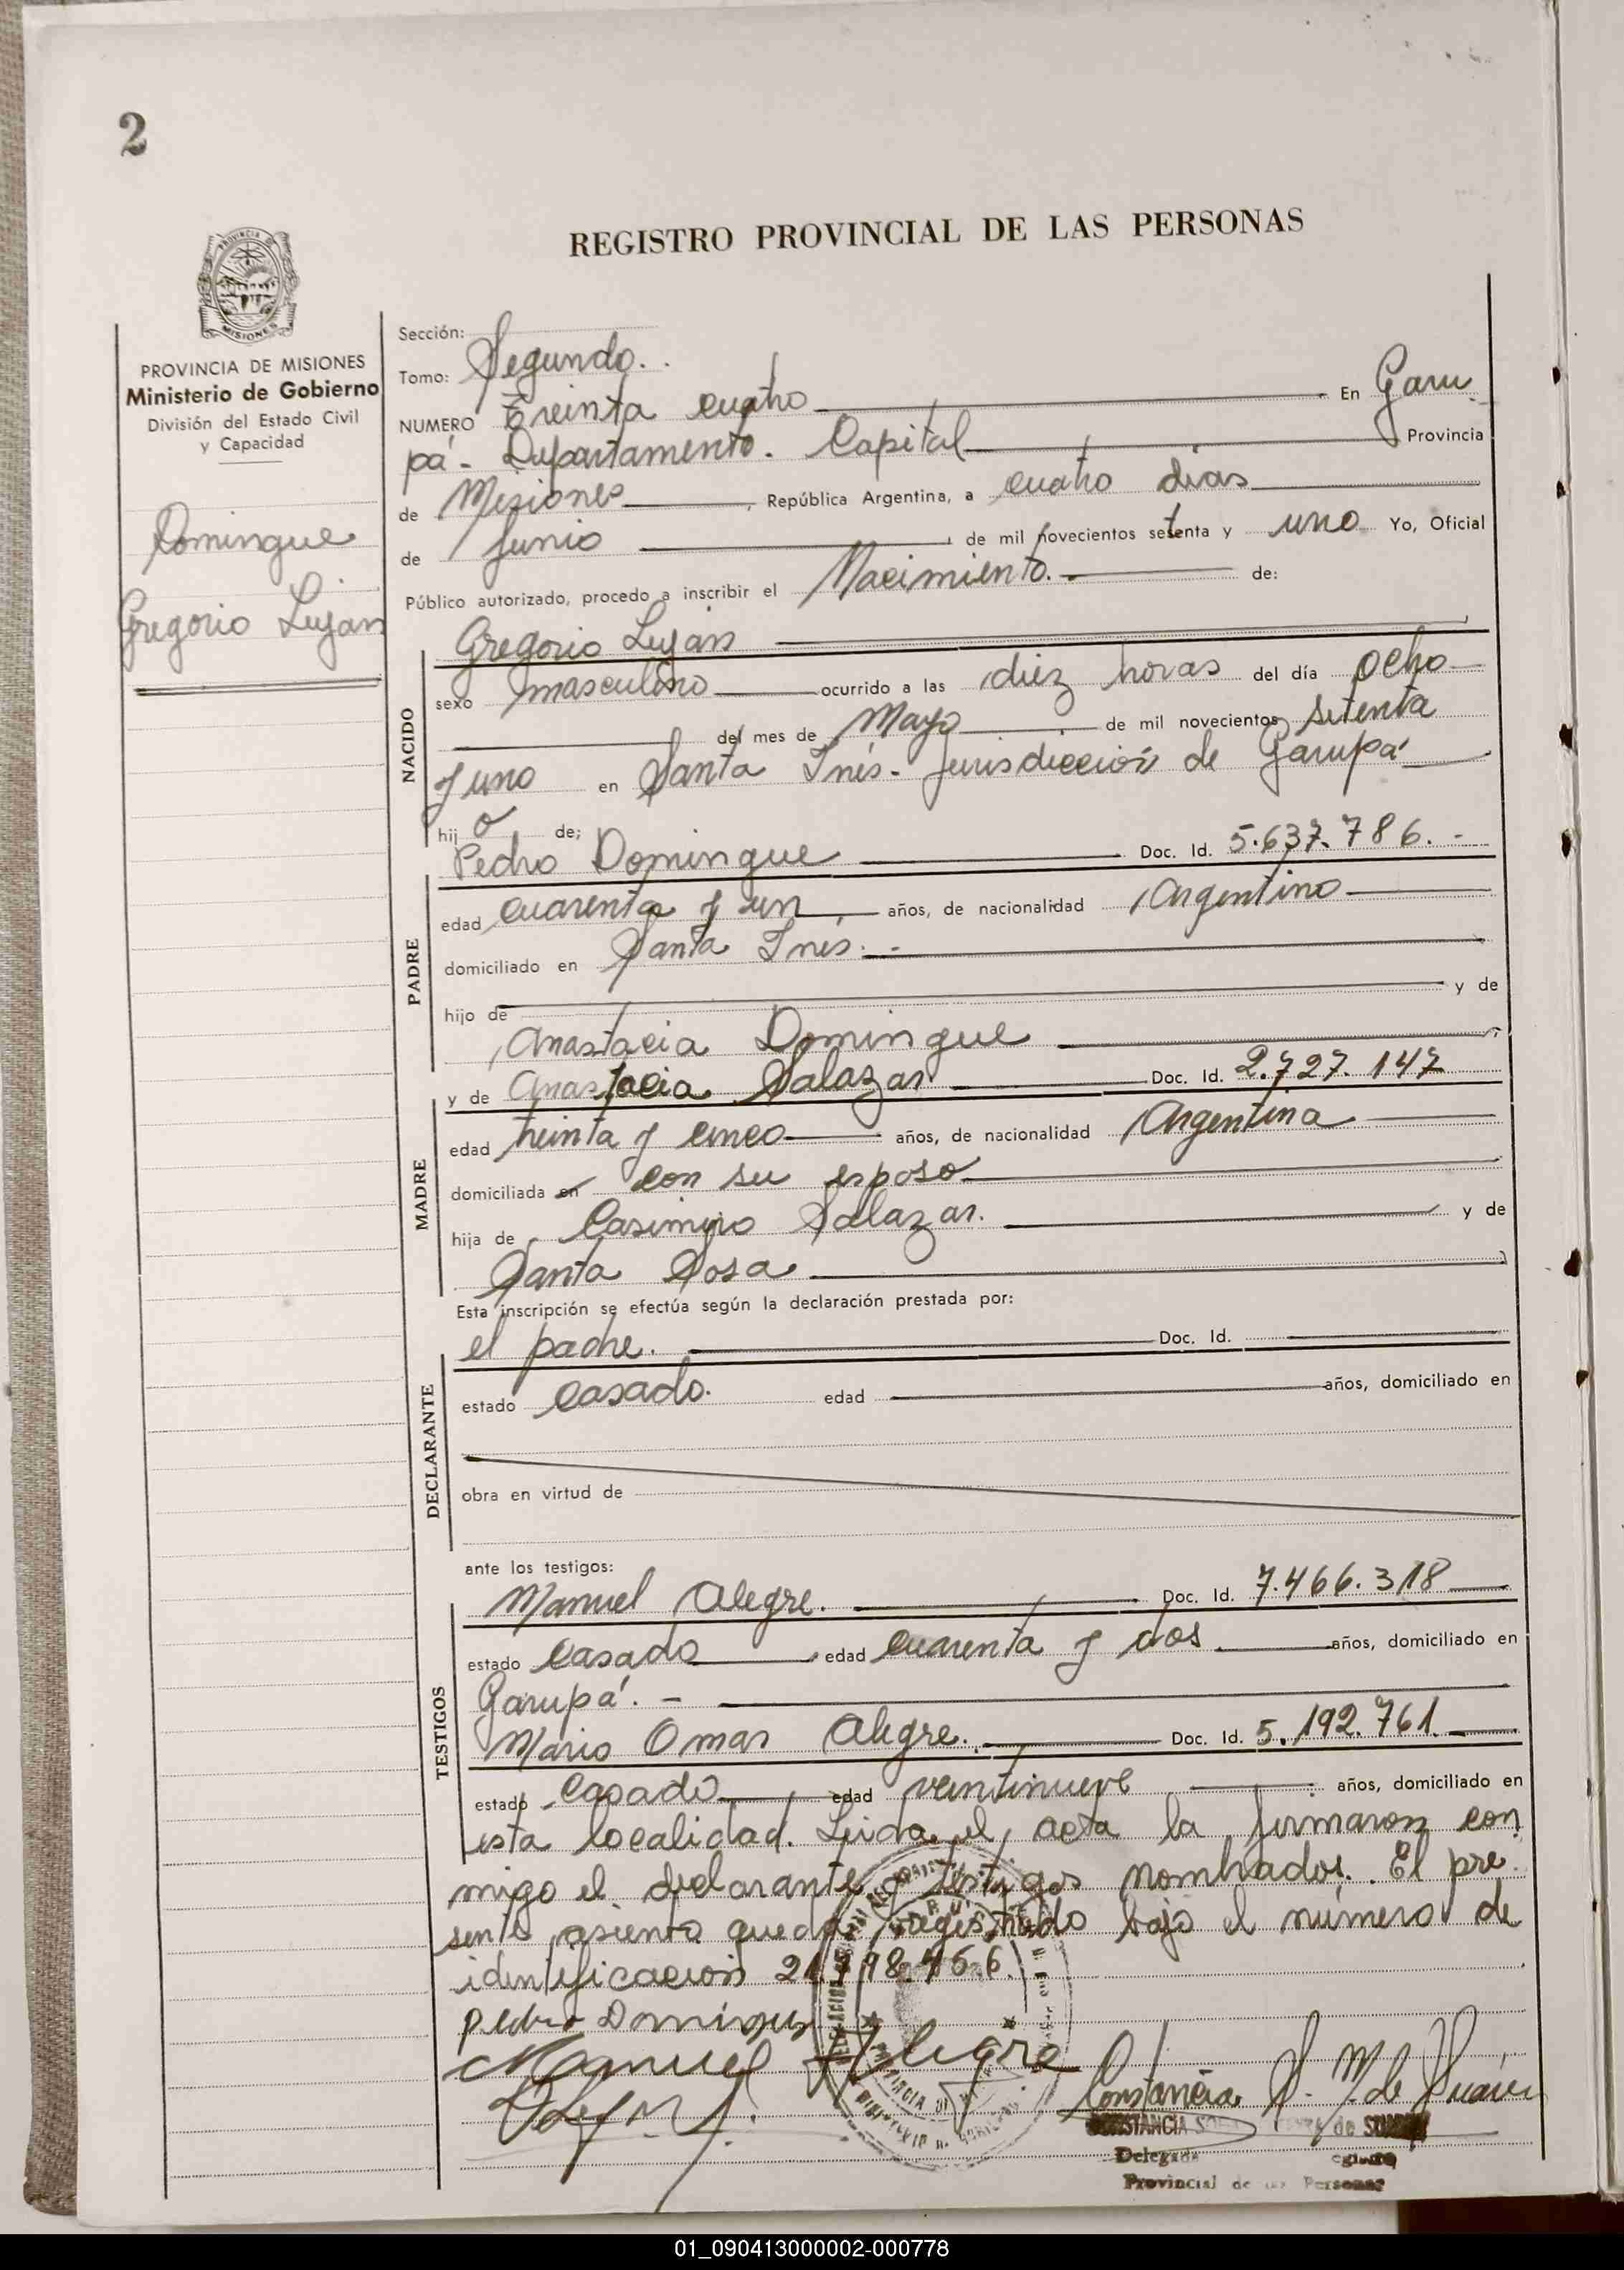 2
REGISTRO PROVINCIAL DE LAS PERSONAS
PROVINCIA DE MISIONES
Ministerio de Gobierno
División del Estado Civil
y Capacidad
Domingue
Gregorio Luján
Sección:
Tomo: Segundo.
NUMERO Treinta cuatro En Garu
pá - Departamento. Capital Provincia
de Misiones, República Argentina, a cuatro dias
de Junio de mil novecientos setenta y uno Yo, Oficial
Público autorizado, procedo a inscribir el Nacimiento. de:
Gregorio Luján
NACIDO
sexo masculino ocurrido a las diez horas del día ocho
del mes de Mayo de mil novecientos setenta
y uno en Santa Inés - Jurisdicción de Garupá
hijo de;
Pedro Domingue Doc. Id. 5.637.786. -
PADRE
edad cuarenta y un años, de nacionalidad Argentino
domiciliado en Santa Inés. -
hijo de y de
Anastacia Domingue
y de Anastacia Salazar Doc. Id. 2.727.147
MADRE
edad treinta y cinco años, de nacionalidad Argentina
domiciliada en con su esposo
hija de Casimiro Salazar. y de
Santa Sosa
Esta inscripción se efectúa según la declaración prestada por:
el padre. Doc. Id.
DECLARANTE
estado casado. edad años, domiciliado en
obra en virtud de
ante los testigos:
Manuel Alegre. Doc. Id. 7.466.318
TESTIGOS
estado casado, edad cuarenta y dos años, domiciliado en
Garupá. -
Mario Omar Alegre. Doc. Id. 5.192.761.
estado casado edad veintinueve años, domiciliado en
esta localidad. Leida el acta la firmaron con
migo el declarante y testigos nombrados. El pre
sente asiento queda registrado bajo el número de
identificación
Pedro Dominguez
Manuel Alegre
Constancia S. M. de Suárez
CONSTANCIA de
Delegada
Provincial de las Personas
01_090413000002-000778